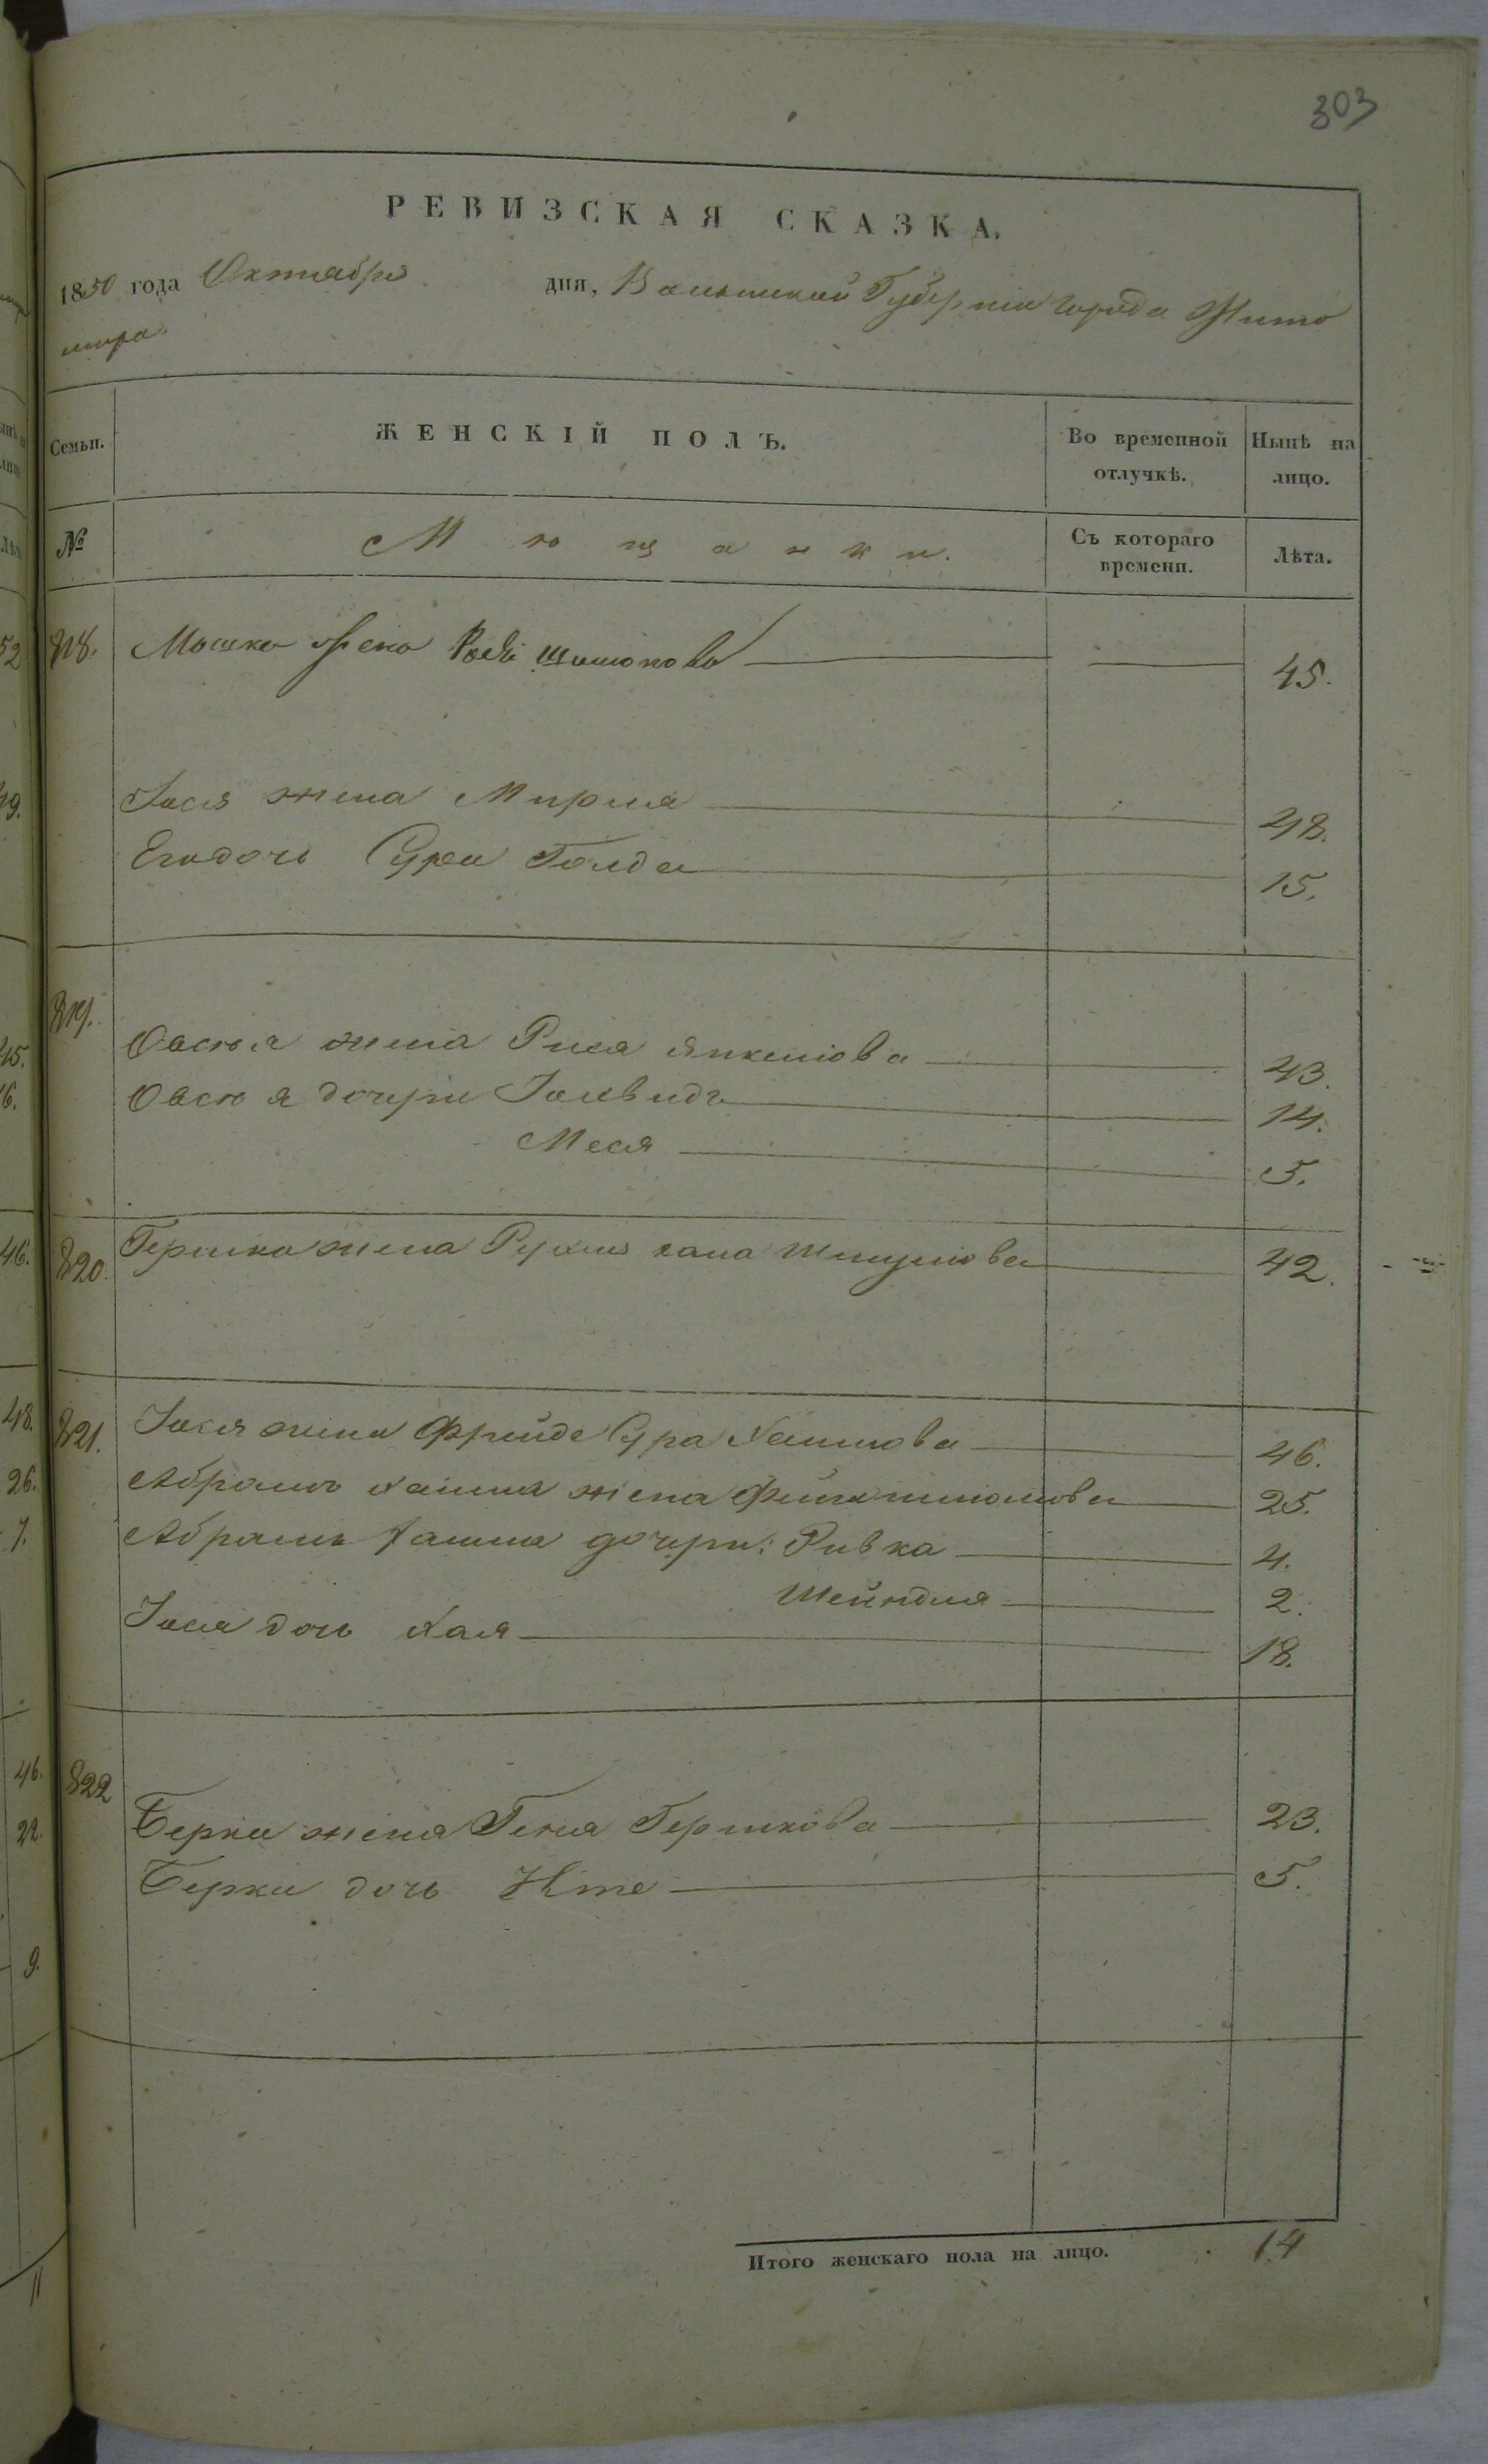 303
РЕВИЗСКАЯ СКАЗКА.
1850 года Октября дня, Волынской Губерніи города Жито
мира
Семьи. ЖЕНСКІЙ ПОЛЪ. Во временной отлучкѣ. Нынѣ на лицо.
№ Мѣщанки. Съ котораго времени. Лѣта.
818. Мошка жена 45.
Іося жена Мирля 48.
Его дочь Сура Голда 15.
819. Овсія жена Рися Янкелiова 43.
Овсія дочери 14.
Меся 5.
820. Гершка жена 42.
821. Іося жена Фрейда Сура Хаимова 46.
Абрамъ Хаима жена 25.
Абрамъ Хаима дочери: Ривка 4.
Шейндля 2.
Іося дочь Хая 18.
822 Берка жена Геня Гершкова 23.
Берки дочь Ите 5.
Итого женскаго пола на лицо. 14